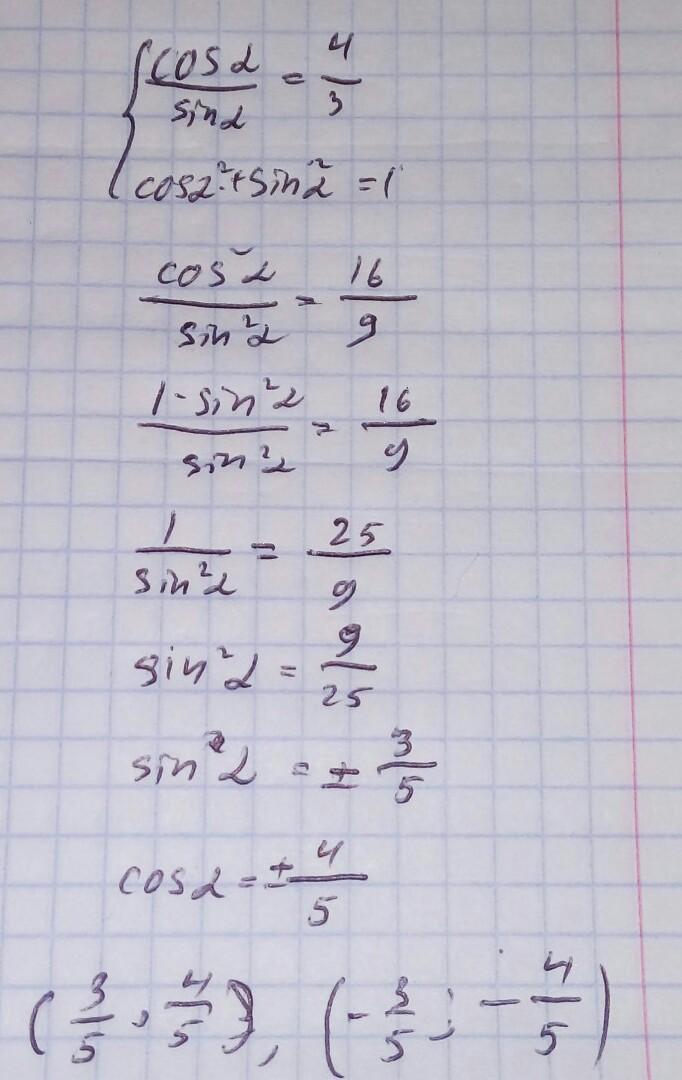 { cos α / sin α = 4/3
cos α² + sin² α = 1
cos² α / sin² α = 16/9
1 - sin² α / sin² α = 16/9
1 / sin² α = 25/9
sin² α = 9/25
sin² α = ± 3/5
cos α = ± 4/5
(3/5, 4/5), (-3/5; -4/5)